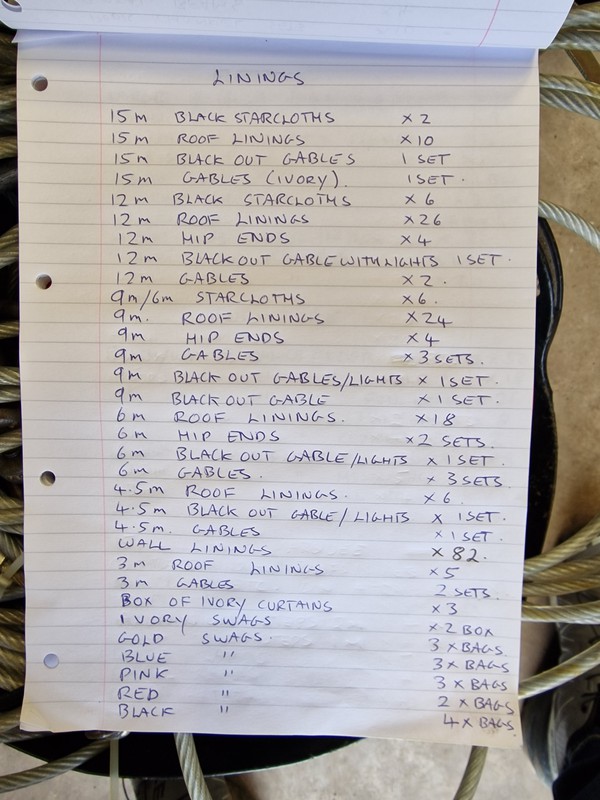 LININGS
15m BLACK STARCLOTHS x 2
15m ROOF LININGS x 10
15m BLACK OUT GABLES 1 SET
15m GABLES (IVORY). 1 SET.
12m BLACK STARCLOTHS x 6
12m ROOF LININGS x 26
12m HIP ENDS x 4
12m BLACK OUT GABLE WITH LIGHTS 1 SET.
12m GABLES x 2.
9m/6m STARCLOTHS x 6.
9m. ROOF LININGS x 24
9m HIP ENDS x 4
9m GABLES x 3 SETS.
9m BLACK OUT GABLES/LIGHTS x 1 SET.
9m BLACK OUT GABLE x 1 SET.
6m ROOF LININGS. x 18
6m HIP ENDS x 2 SETS.
6m BLACK OUT GABLE/LIGHTS x 1 SET.
6m GABLES. x 3 SETS.
4.5m ROOF LININGS. x 6.
4.5m BLACK OUT GABLE/LIGHTS x 1 SET.
4.5m. GABLES x 1 SET.
WALL LININGS x 82.
3m ROOF LININGS x 5
3m GABLES 2 SETS.
BOX OF IVORY CURTAINS x 3
IVORY SWAGS x 2 BOX
GOLD SWAGS. 3 x BAGS.
BLUE " 3 x BAGS
PINK " 3 x BAGS
RED " 2 x BAGS
BLACK " 4 x BAGS.